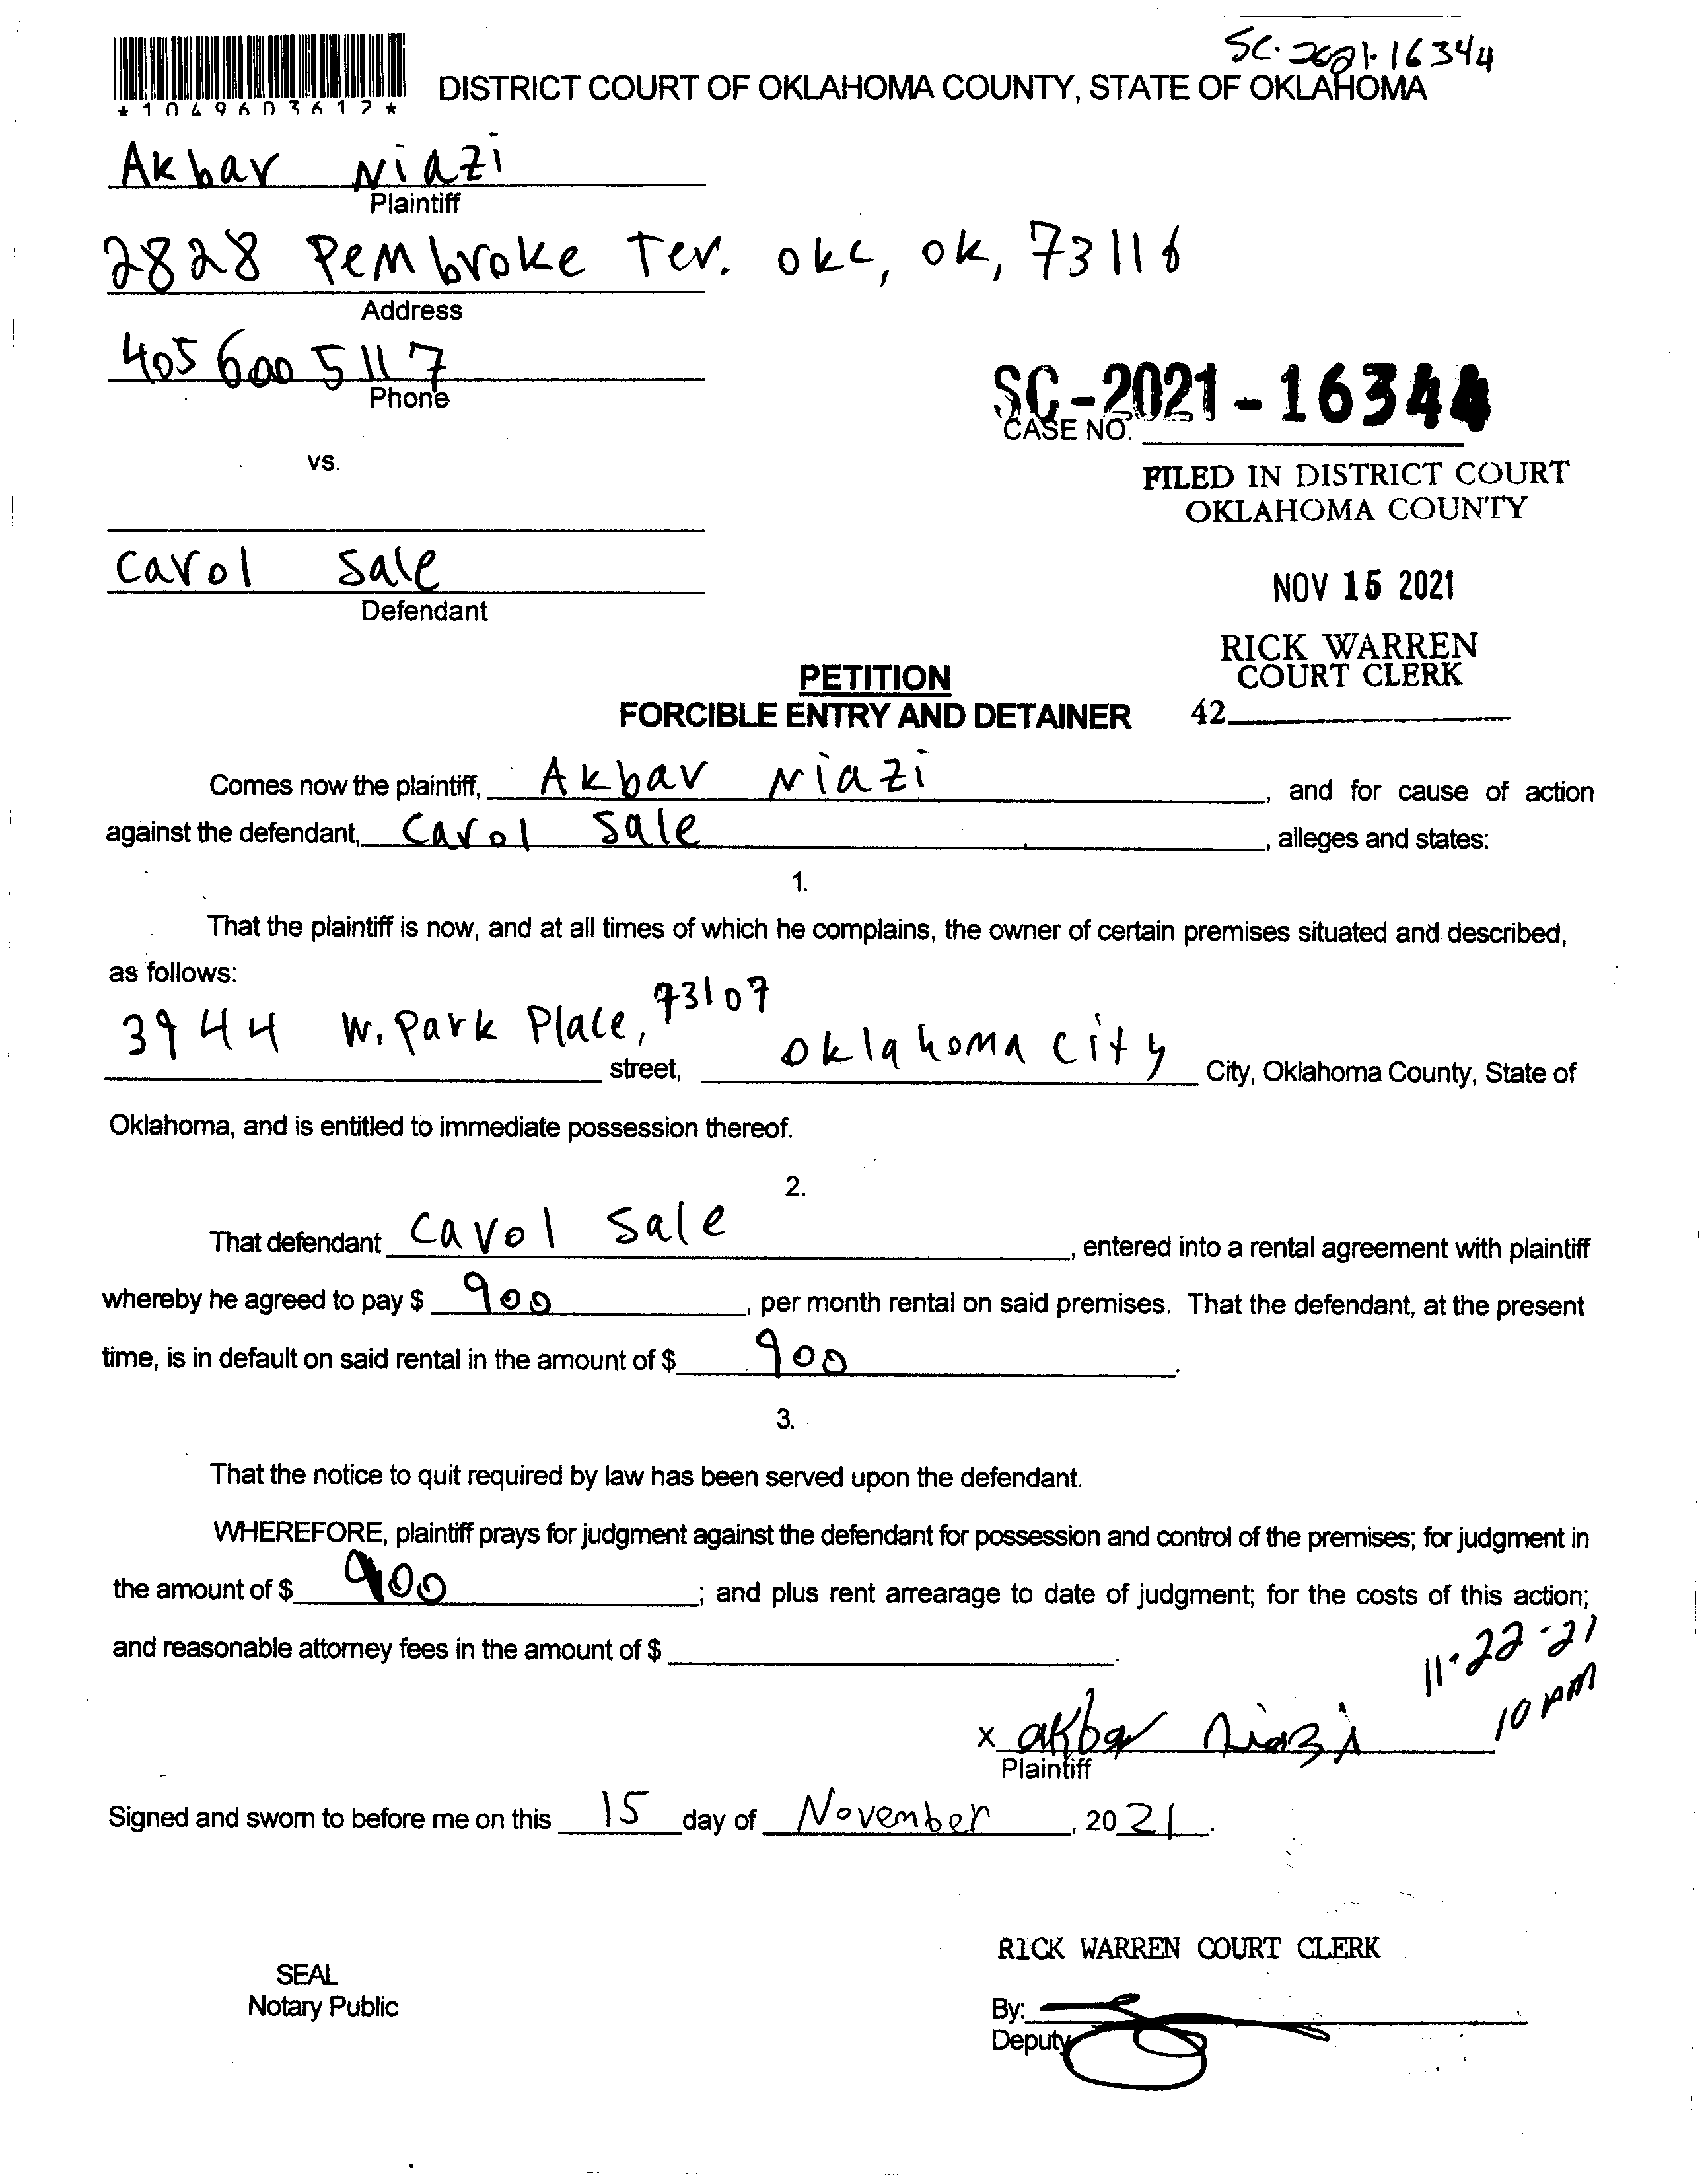 SC-2021-16344
*1049603612*
DISTRICT COURT OF OKLAHOMA COUNTY, STATE OF OKLAHOMA
Akbar Niazi
Plaintiff
2828 Pembroke Ter. okc, ok, 73116
Address
405 600 5117
Phone
SC-2021-16344
CASE NO.
vs.
FILED IN DISTRICT COURT
OKLAHOMA COUNTY
Carol Sale
Defendant
NOV 15 2021
RICK WARREN
COURT CLERK
42
PETITION
FORCIBLE ENTRY AND DETAINER
Comes now the plaintiff, Akbar Niazi, and for cause of action
against the defendant, Carol Sale, alleges and states:
1.
That the plaintiff is now, and at all times of which he complains, the owner of certain premises situated and described,
as follows:
3944 W. Park Place, 73107 street, Oklahoma city City, Oklahoma County, State of
Oklahoma, and is entitled to immediate possession thereof.
2.
That defendant Carol Sale, entered into a rental agreement with plaintiff
whereby he agreed to pay $ 900, per month rental on said premises. That the defendant, at the present
time, is in default on said rental in the amount of $ 900.
3.
That the notice to quit required by law has been served upon the defendant.
WHEREFORE, plaintiff prays for judgment against the defendant for possession and control of the premises; for judgment in
the amount of $ 900; and plus rent arrearage to date of judgment; for the costs of this action;
and reasonable attorney fees in the amount of $ .
11-22-21
10 AM
x akbar niazi
Plaintiff
Signed and sworn to before me on this 15 day of November, 2021.
RICK WARREN COURT CLERK
SEAL
Notary Public
By:
Deputy